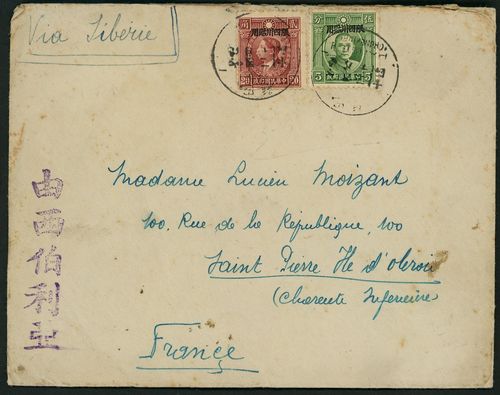 Via Sibérie
限四川貼用
限四川貼用
20
20
5
5
由西伯利亚
Madame Lucien Moizant
100, Rue de la République, 100
Saint Pierre Ile d'oléron
(Charente Inférieure
France